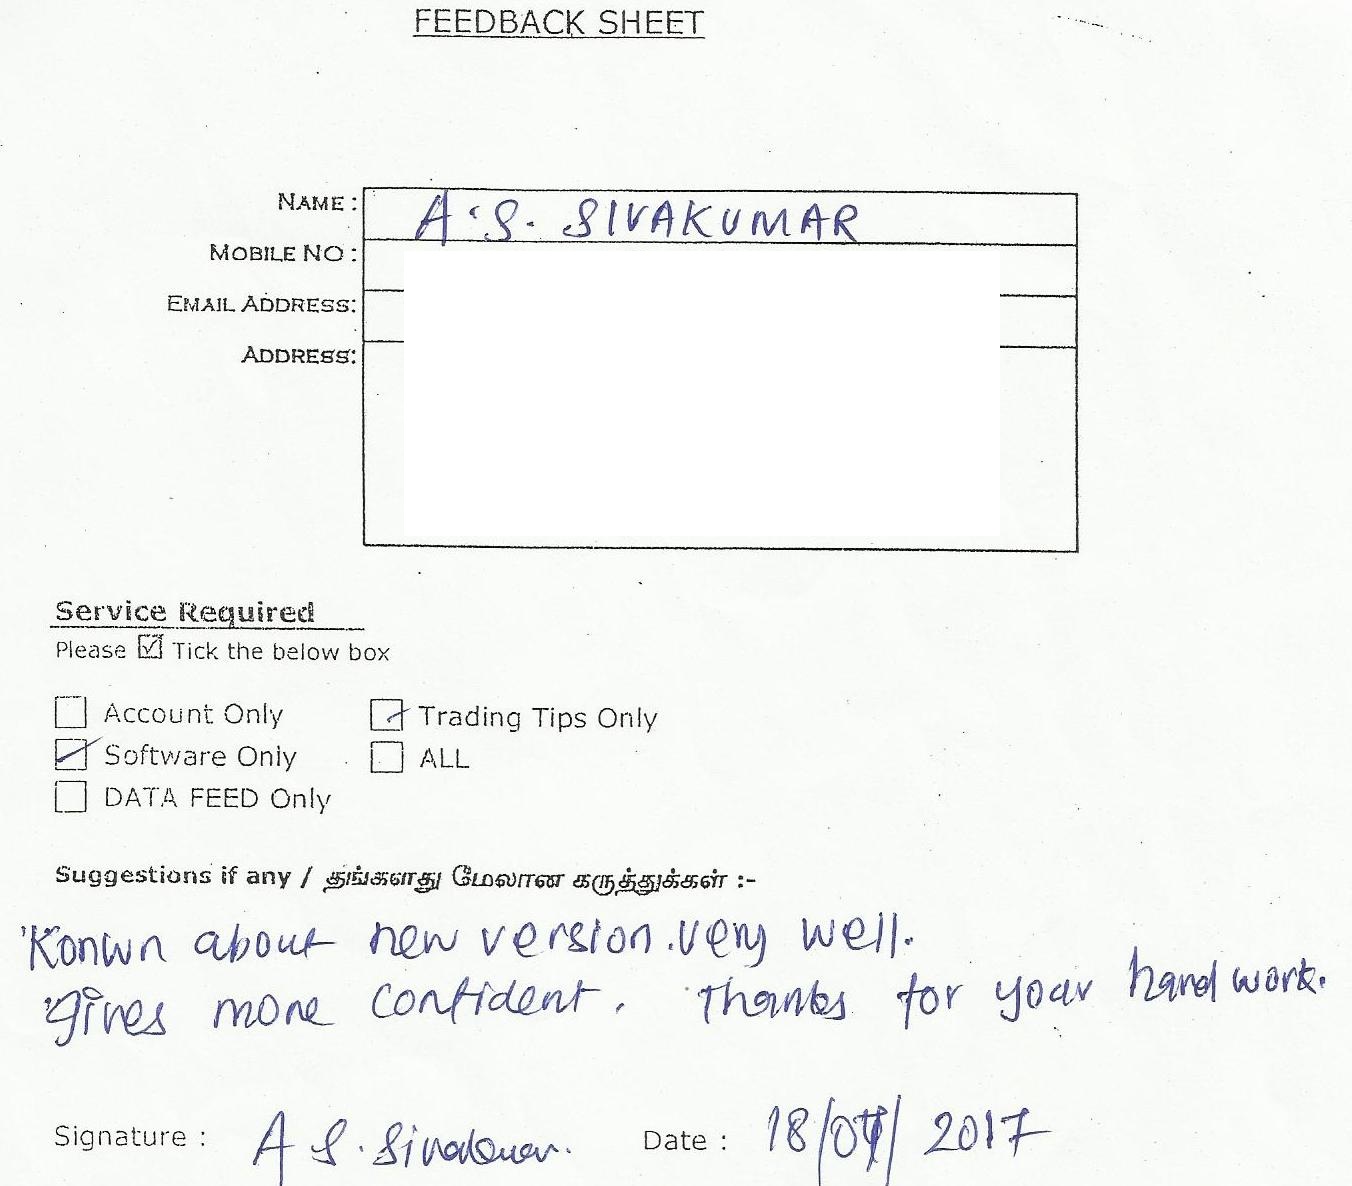 FEEDBACK SHEET
NAME : A.S. SIVAKUMAR
MOBILE NO :
EMAIL ADDRESS:
ADDRESS:
Service Required
Please ☑ Tick the below box
Account Only
Trading Tips Only
Software Only
ALL
DATA FEED Only
Suggestions if any / தங்களது மேலான கருத்துக்கள் :-
Konwn about new version. very well.
gives more confident. Thanks for your hard work.
Signature : A S. Sivakumar. Date : 18/ / 2017